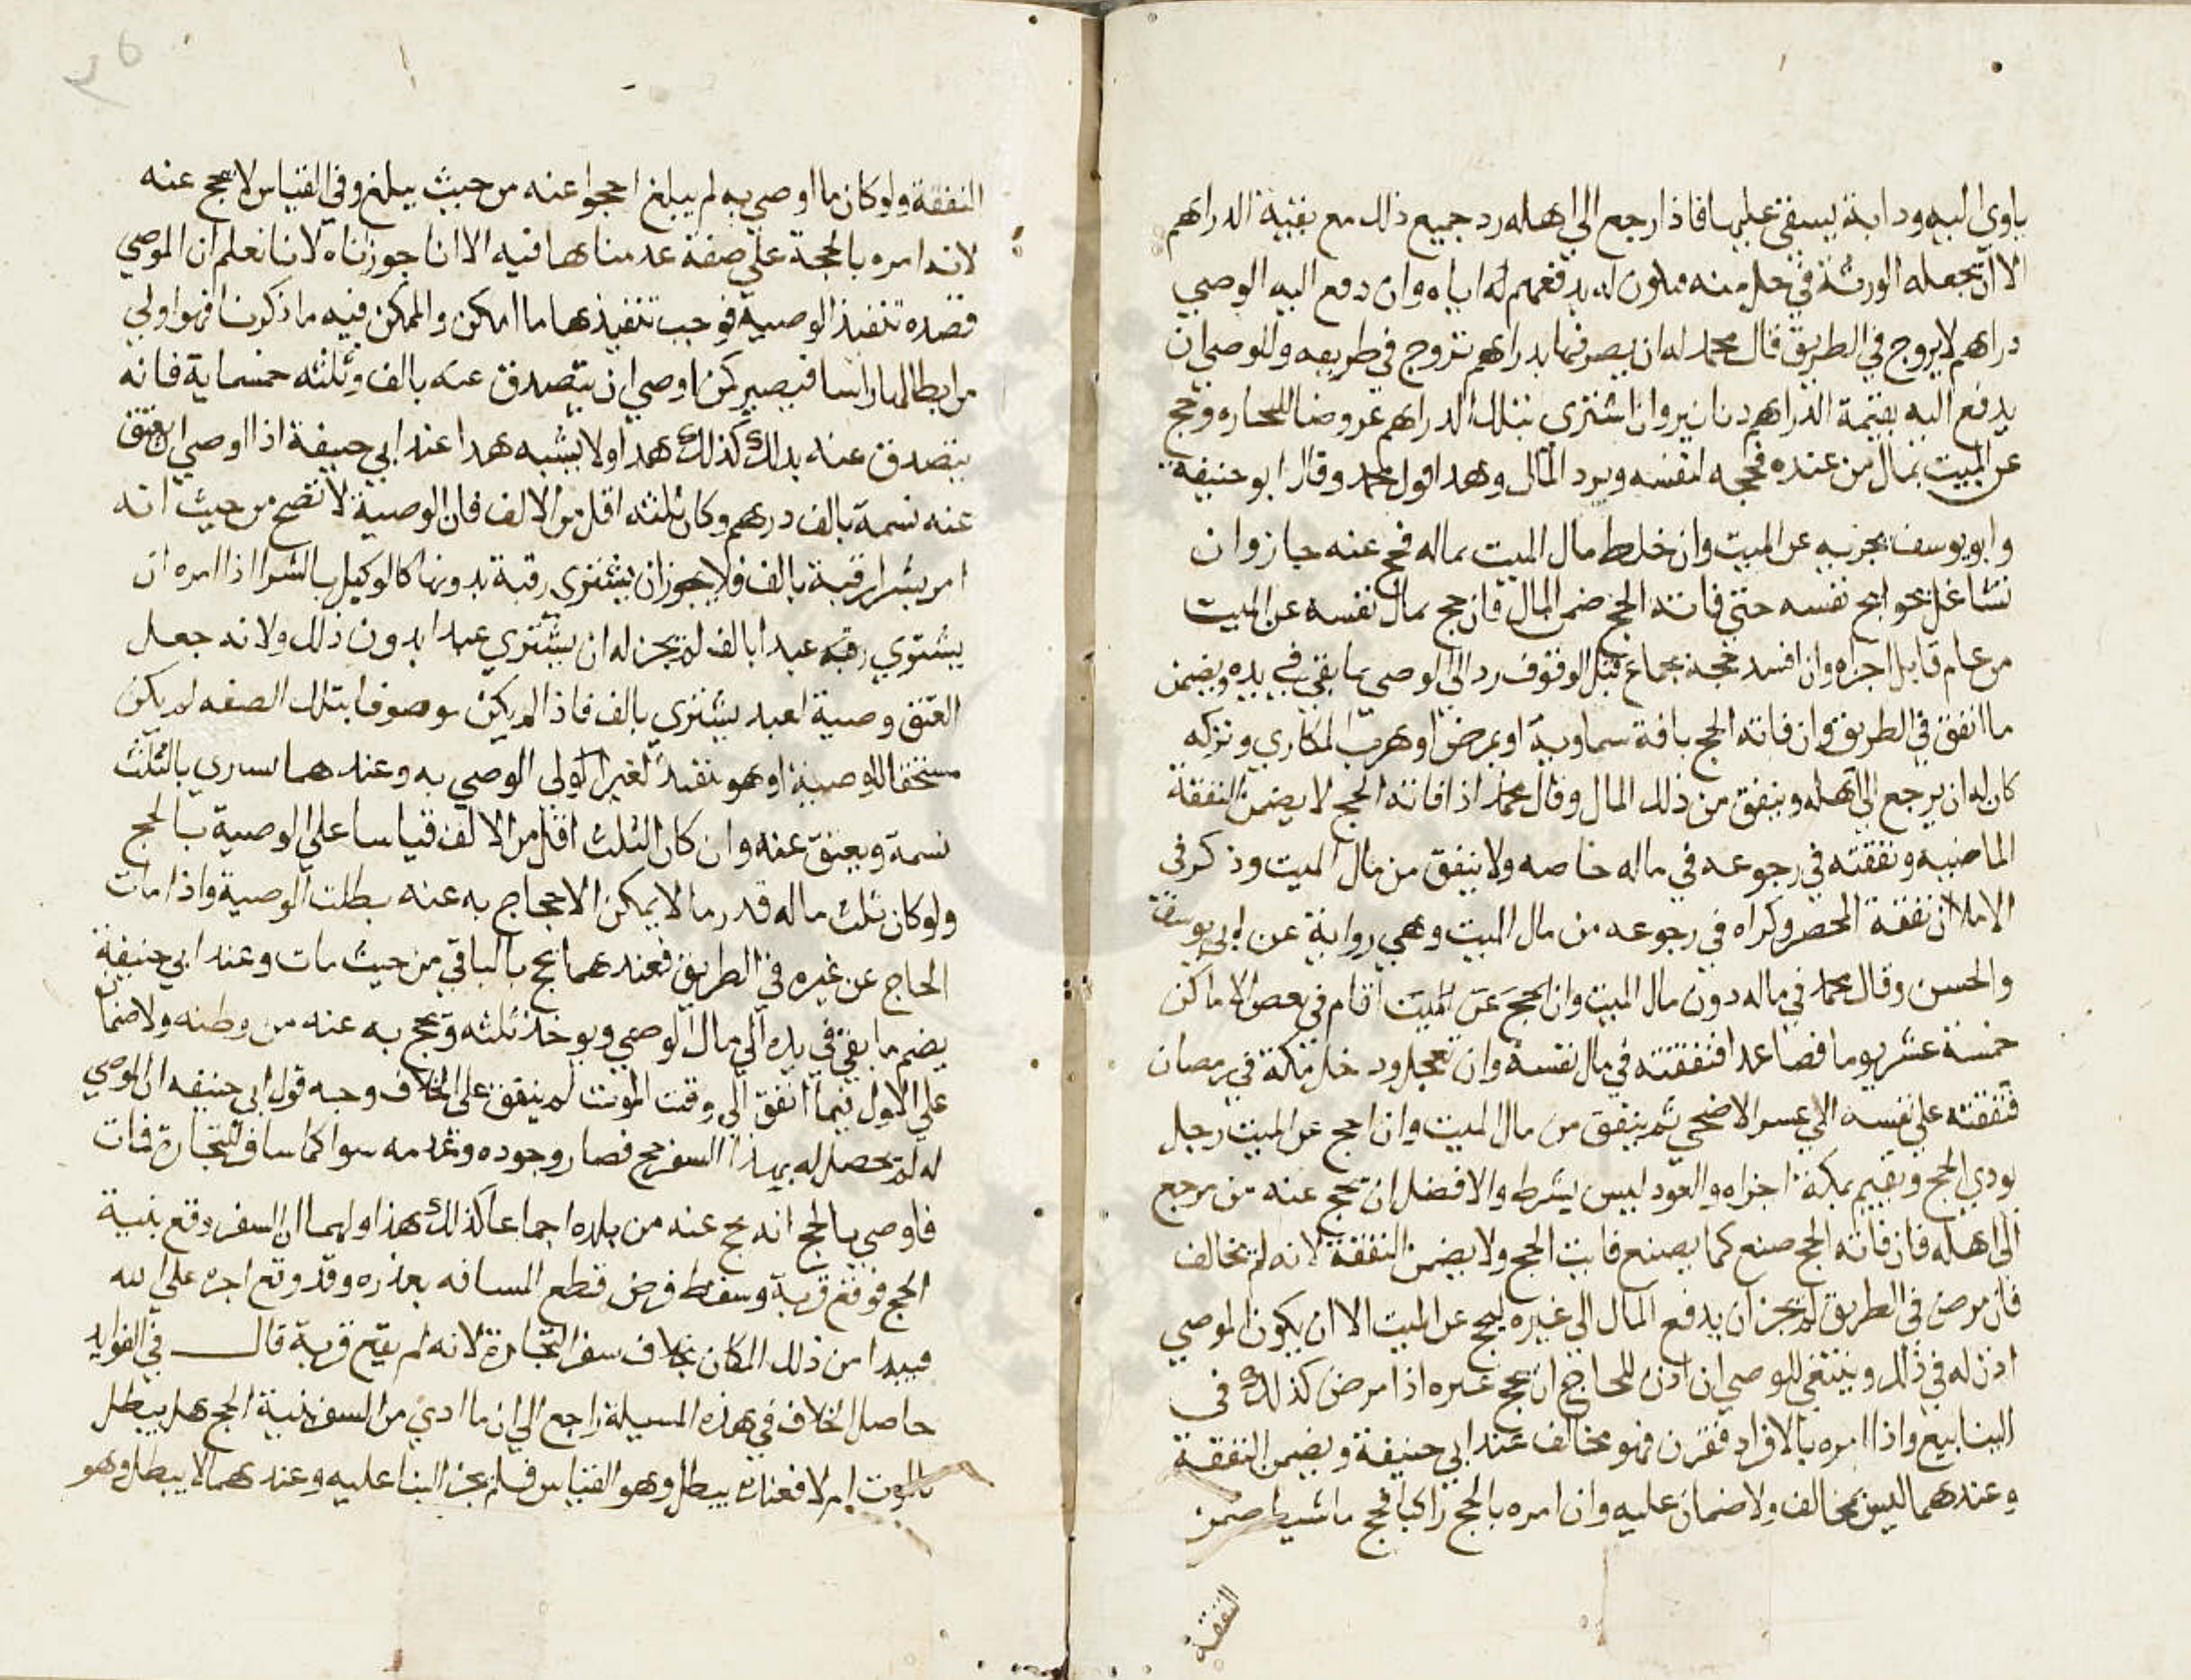 ياوي اليه ودابة يسقي عليها فاذا رجع الي اهله رد جميع ذلك مع بقية الدراهم
الا ان يجعله الورثة في حل منه فيكون له بدفعهم له اياه وان دفع اليه الوصي
دراهم لا يروج في الطريق قال محمد له ان يصرفها بدراهم تروج في طريقه وللوصي ان
يدفع اليه بقيمة الدراهم دنانير وان اشتري بتلك الدراهم عروضا للتجاره وحج
عن الميت بمال من عنده فحجه لنفسه ويرد المال وهذا قول محمد وقال ابو حنيفة
وابو يوسف يجزيه عن الميت وان خلط مال الميت بماله فحج عنه جاز وان
تشاغل بحوايج نفسه حتي فاته الحج ضمن المال فان حج بمال نفسه عن الميت
من عام قابل اجزاه وان افسد حجه بجماع قبل الوقوف رد الي الوصي ما بقي في يده ويضمن
ما انفق في الطريق وان فاته الحج بافة سماوية او بمرض او هرب المكاري وتركه
كان له ان يرجع الي اهله وينفق من ذلك المال وقال محمد اذا فاته الحج لا يضمن النفقة
الماضيه ونفقته في رجوعه في ماله خاصه ولا ينفق من مال الميت وذكر في
الاملا ان نفقة المحصر وكراه في رجوعه من مال الميت وهي رواية عن ابي يوسف
والحسن وقال محمد في ماله دون مال الميت وان الحج عن الميت اقام في بعض الاماكن
خمسة عشر يوما فصاعدا فنفقته في مال نفسه وان تعجل ودخل مكة في رمضان
فنفقته علي نفسه الي عسر الاضحي ثم ينفق من مال الميت وان احج عن الميت رجل
يودي الحج ويقيم بمكة اجزاه والعود ليس بشرط والافضل ان يحج عنه من يرجع
الي اهله فان فاته الحج صنع كما يصنع فايت الحج ولا يضمن النفقة لانه لم يخالف
فان مرض في الطريق لم يجز ان يدفع المال الي غيره ليحج عن الميت الا ان يكون الموصي
اذن له في ذلك وينبغي للوصي ان اذن للحاج ان يحج غيره اذا مرض كذلك في
الينابيع واذا امره بالافراد فقرن فهو مخالف عند ابي حنيفة ويضمن النفقة
وعندهما ليس بمخالف ولا ضمان عليه وان امره بالحج راكبا فحج ماشيا ضمن
النفقة
النفقة ولو كان ما اوصي به لم يبلغ احجوا عنه من حيث يبلغ وفي القياس لا يحج عنه
لانه امره بالحجة علي صفة عدمناها فيه الا انا جوزناه لانا نعلم ان الموصي
قصده تنفيذ الوصية فوجب تنفيذها ما امكن والممكن فيه ما ذكرنا فهو اولي
من ابطالها راسا فيصير كمن اوصي ان يتصدق عنه بالف وثلثه خمسماية فانه
يتصدق عنه بذلك كذلك هذا ولا يشبه هذا عند ابي حنيفة اذا اوصي ان يعتق
عنه نسمة بالف درهم وكان ثلثه اقل من الالف فان الوصية لا تصح من حيث انه
امر بشرا رقبة بالف فلا يجوز ان يشتري رقبة بدونها كالوكيل بالشرا اذا امره ان
يشتري رقبه عبدا بالف لم يجز له ان يشتري عبدا بدون ذلك ولانه جعل
العتق وصية لعبد يشتري بالف فاذا لم يكن موصوفا بتلك الصفه لم يكن
مستحقا للوصية او هو تنفيذ لغير الولي الوصي به وعندهما يشري بالثلث
نسمة ويعتق عنه وان كان الثلث اقل من الالف قياسا علي الوصية بالحج
ولو كان ثلث ماله قدر ما لا يمكن الاحجاج به عنه بطلت الوصية واذا مات
الحاج عن غيره في الطريق فعندهما يحج بالباقي من حيث مات وعند ابي حنيفة
يضم ما بقي في يده الي مال الوصي ويوخذ ثلثه ويحج به عنه من وطنه ولا ضمان
علي الاول فيما انفق الي وقت الموت لم ينفق علي الخلاف وجه قول ابي حنيفه ان الموصي
له لم يحصل له بهذا السفر حج فصار وجوده وعدمه سوا كما سافر للتجارة فمات
فاوصي بالحج انه يحج عنه من بلده اجماعا كذلك هذا ولهما ان السفر وقع بنية
الحج فوقع قربة وسقط فرض قطع المسافه بعذره وقد وقع اجره علي الله
فيبدا من ذلك المكان بخلاف سفر التجارة لانه لم يقع قربة قال في الفوايد
حاصل الخلاف في هذه المسيلة راجع الي ان ما ادي من السفر بنية الحج هل يبطل
بالموت ام لا فعنده يبطل وهو القياس فلم يجز البنا عليه وعندهما لا يبطل وهو